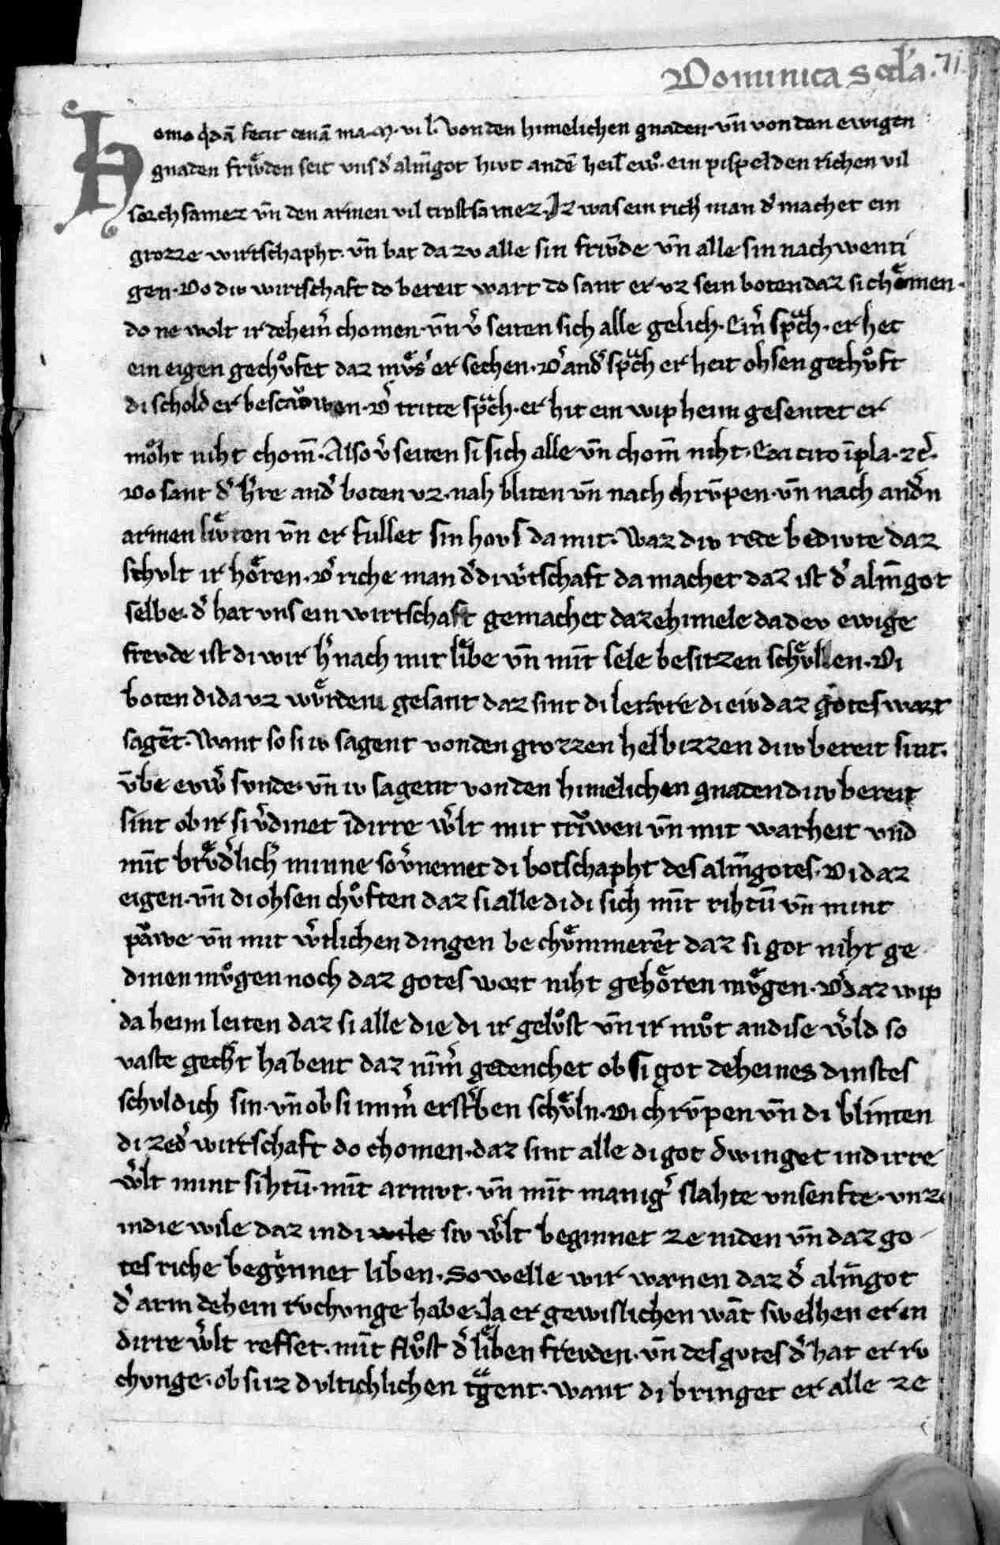 Dominica scd'a. 71
Homo q̇dā fecit cenā ma. M. vil. Von den himelichen gnaden. vn̄ von den ewigen
gnaden frͤvden seit vns d' almˉgot hivt an dē heil ew̉. ein pispel den richen vil
sorchsamez vn̄ den armen vil trostsamez. Iz was ein rich man d' machet ein
grozze wirtschapht. vn̄ bat dazv alle sin frivͤde vn̄ alle sin nachwenti
gen. Do div wirtschaft do bereit wart do sant er vz sein boten daz si chͤomen.
do ne wolt ir deheiň chomen. vn̄ v̉seiten sich alle gelich. Eiň spͣch. er het
ein eigen gechͦvfet daz mͦvs' er sechen. D' and' spͣch er heit ohsen gechͦvft
di schold er bescͦawen. D' tritte spͣch. er hit ein wip heim gesentet er
mͦoht niht chom̄. Also v̉seiten si sich alle vn̄ chom̄ niht. Exi cito ī pla. ꝛc̉.
Do sant d' h're and' boten vz. nah bliten vn̄ nach chrvͤpen. vn̄ nach and'n
armen livͤten vn̄ er fullet sin hovs da mit. Waz div rede bedivte daz
schvlt ir hͤoren. D' riche man d' di wirtschaft da machet daz ist d' almˉgot
selbe. d' hat vns ein wirtschaft gemachet da ze himele da dev ewige
frevde ist di wir h'nach mit lībe vn̄ mit sele besitzen schͤvllen. Di
boten di da vz wͤvrdem gesant daz sint di lerære di eiv daz gotes wort
sagēt. Want so si iv sagent von den grozzen helbizzen div bereit sint.
vͤbe evẘ svnde. vn̄ iv sagent von den himelichen gnaden div bereit
sint ob ir si v̉dinet ī dirre w̉lt mit trͦiwen vn̄ mit warheit vnd
mit brͤvd'lich' minne so v̉nemet di botschapht des almˉgotes. Di daz
eigen. vn̄ di ohsen chͦvften daz si alle di di sich mit rihtū vn̄ mint
pͣwe vn̄ mit w̉tlichen dingen bechͤvmmerēt daz si got niht ge
dinen mͦvgen noch daz gotes wort niht gehͤoren mͤvgen. D' daz wip
da heim leiten daz si alle die di ir gelͦvst vn̄ ir mͦvt an dise w̉ld so
vaste gech't habent daz nim̄' gedenchet ob si got deheines dinstes
schvldich sin. vn̄ ob si imm' erst'ben schͤvln. Di chrvͤpen vn̄ di blinten
di ze d' wirtschaft do chomen. daz sint alle di got dwinget in dirre
w̉lt mint sihtū. mit armvt. vn̄ mit manig' slahte vnsenfte. vnz
in die wile daz in di wile siv w̉lt beginnet ze niden vn̄ daz go
tes riche begͤinnet liben. So welle wir wænen daz d' almˉgot
d' arm dehein rvchvnge habe. Ja er gewislichen wāt swelhen er in
dirre w̉lt reffet. mit flͦvst d' līben frevden. vn̄ des gvtes d' hat er rv
chvnge. ob si iz dvltichlichen tͣgent. want di bringet er alle ze